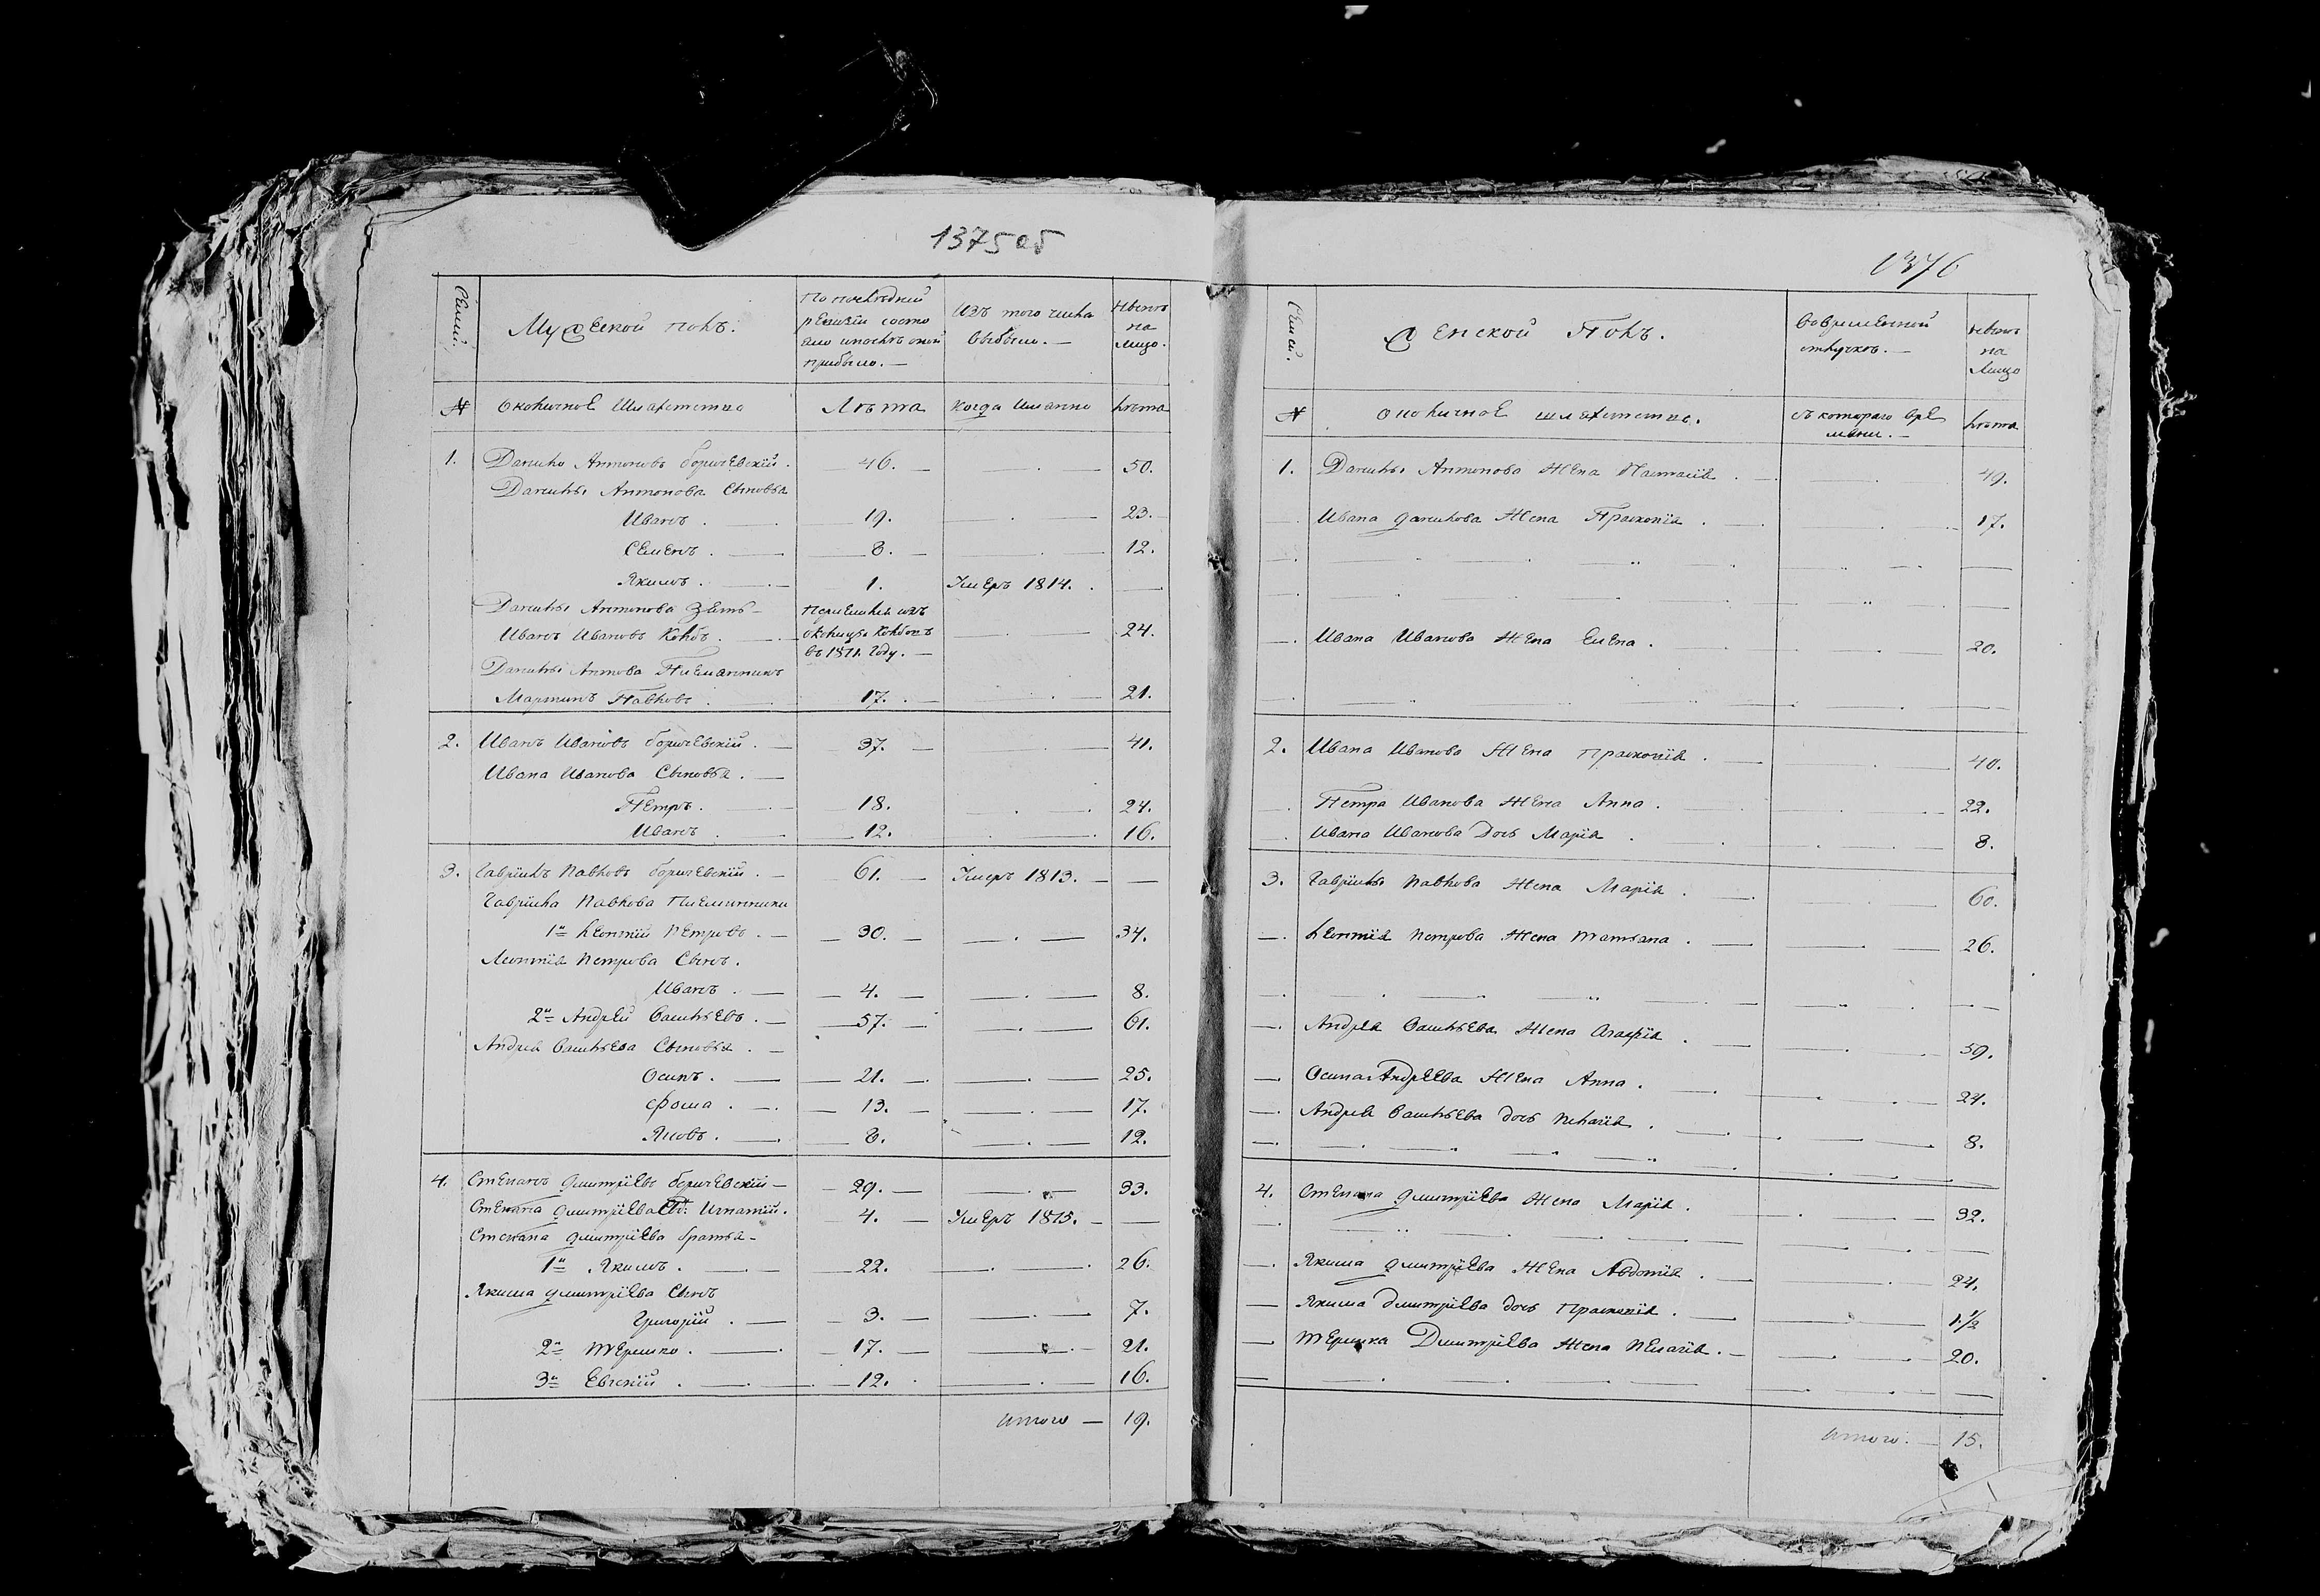 1375 об
1376
Семьи.
Мужеской полъ.
По последней
ревизіи состо
яло и после оной
прибыло. —
Изъ того числа
выбыло. —
Ныне
на
лицо.
№
околичное Шляхетство
Лета
когда именно
Лета
1. Данило Антоновъ боричевскій. 46. 50.
Данилы Антонова Сыновья
Иванъ. 19. 23.
Семенъ. 8. 12.
Якимъ. 1. Умеръ 1814.
Данилы Антонова Зять
Иванъ Ивановъ Колбъ. 24.
околицы Колбовъ
въ 1811. году. —
Данилы Антова Племянникъ
Мартинъ Павловъ. 17. 21.
2. Иванъ Ивановъ боричевскій. 37. 41.
Ивана Иванова Сыновья.
Петръ. 18. 24.
Иванъ 12. 16.
3. Гаврилъ Павловъ боричевскій. 61. Умеръ 1813.
Гаврила Павлова Племянники
1й Леонтій Петровъ. 30. 34.
Леонтія Петрова Сынъ.
Иванъ. 4. 8.
2й Андрей Васильевъ. 57. 61.
Андрея Васильева Сыновья.
Осипъ. 21. 25.
Фома. 13. 17.
Яковъ. 8. 12.
4. Степанъ дмитріевъ боричевскій 29. 33.
Степана дмитріева Игнатій. 4. Умеръ 1815.
Степана дмитріева братья
1й Якимъ. 22. 26.
Якима дмитріева Сынъ
Григорій. 3. 7.
2й Терешко. 17. 21.
3й 12. 16.
итого — 19.
Семьи.
Женской Полъ.
Во временной
отлучке. —
ныне
на
Лицо
№
околичное шляхетство.
съ котораго вре
мени. —
Лета
1. Данилы Антонова Жена Настасія 49.
Ивана данилова Жена Прасковія. 17.
Ивана Иванова Жена Елена. 20.
2. Ивана Иванова Жена Прасковія. 40.
Петра Иванова Жена Анна. 22.
Ивана Иванова Дочь Марія 8.
3. Гаврилы Павлова Жена Марія. 60.
Леонтія Петрова Жена Татьяна. 26.
Андрея Васильева Жена Агафія. 59.
Осипа Андреева Жена Анна. 24.
Андрея Васильева дочь Пелагія. 8.
4. Степана дмитріева Жена Марія. 32.
Якима дмитріева Жена Авдотія. 24.
Якима дмитріева дочь Прасковія. 1 1/2
Терешка Дмитріева Жена Пелагія. 20.
итого. — 15.